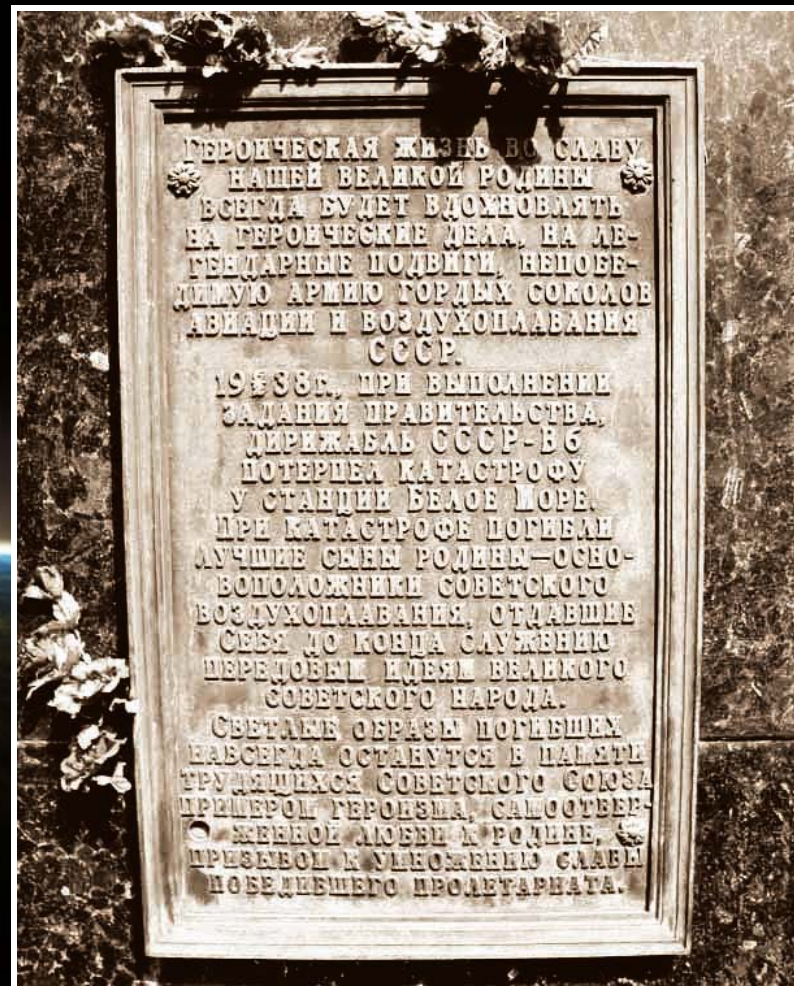 ГЕРОИЧЕСКАЯ ЖИЗНЬ ВО СЛАВУ
НАШЕЙ ВЕЛИКОЙ РОДИНЫ
ВСЕГДА БУДЕТ ВДОХНОВЛЯТЬ
НА ГЕРОИЧЕСКИЕ ДЕЛА, НА ЛЕ-
ГЕНДАРНЫЕ ПОДВИГИ, НЕПОБЕ-
ДИМУЮ АРМИЮ ГОРДЫХ СОКОЛОВ
АВИАЦИИ И ВОЗДУХОПЛАВАНИЯ
СССР.
38г., ПРИ ВЫПОЛНЕНИИ
ЗАДАНИЯ ПРАВИТЕЛЬСТВА,
ДИРИЖАБЛЬ СССР-В6
ПОТЕРПЕЛ КАТАСТРОФУ
У СТАНЦИИ БЕЛОЕ МОРЕ.
ПРИ КАТАСТРОФЕ ПОГИБЛИ
ЛУЧШИЕ СЫНЫ РОДИНЫ—ОСНО-
ВОПОЛОЖНИКИ СОВЕТСКОГО
ВОЗДУХОПЛАВАНИЯ, ОТДАВШИЕ
СЕБЯ ДО КОНЦА СЛУЖЕНИЮ
ПЕРЕДОВЫМ ИДЕЯМ ВЕЛИКОГО
СОВЕТСКОГО НАРОДА.
СВЕТЛЫЕ ОБРАЗЫ ПОГИБШИХ
НАВСЕГДА ОСТАНУТСЯ В ПАМЯТИ
ТРУДЯЩИХСЯ СОВЕТСКОГО СОЮЗА
ПРИМЕРОМ ГЕРОИЗМА, САМООТВЕР-
ЖЕННОЙ ЛЮБВИ К РОДИНЕ,
ПРИЗЫВОМ К УМНОЖЕНИЮ СЛАВЫ
ПОБЕДИВШЕГО ПРОЛЕТАРИАТА.